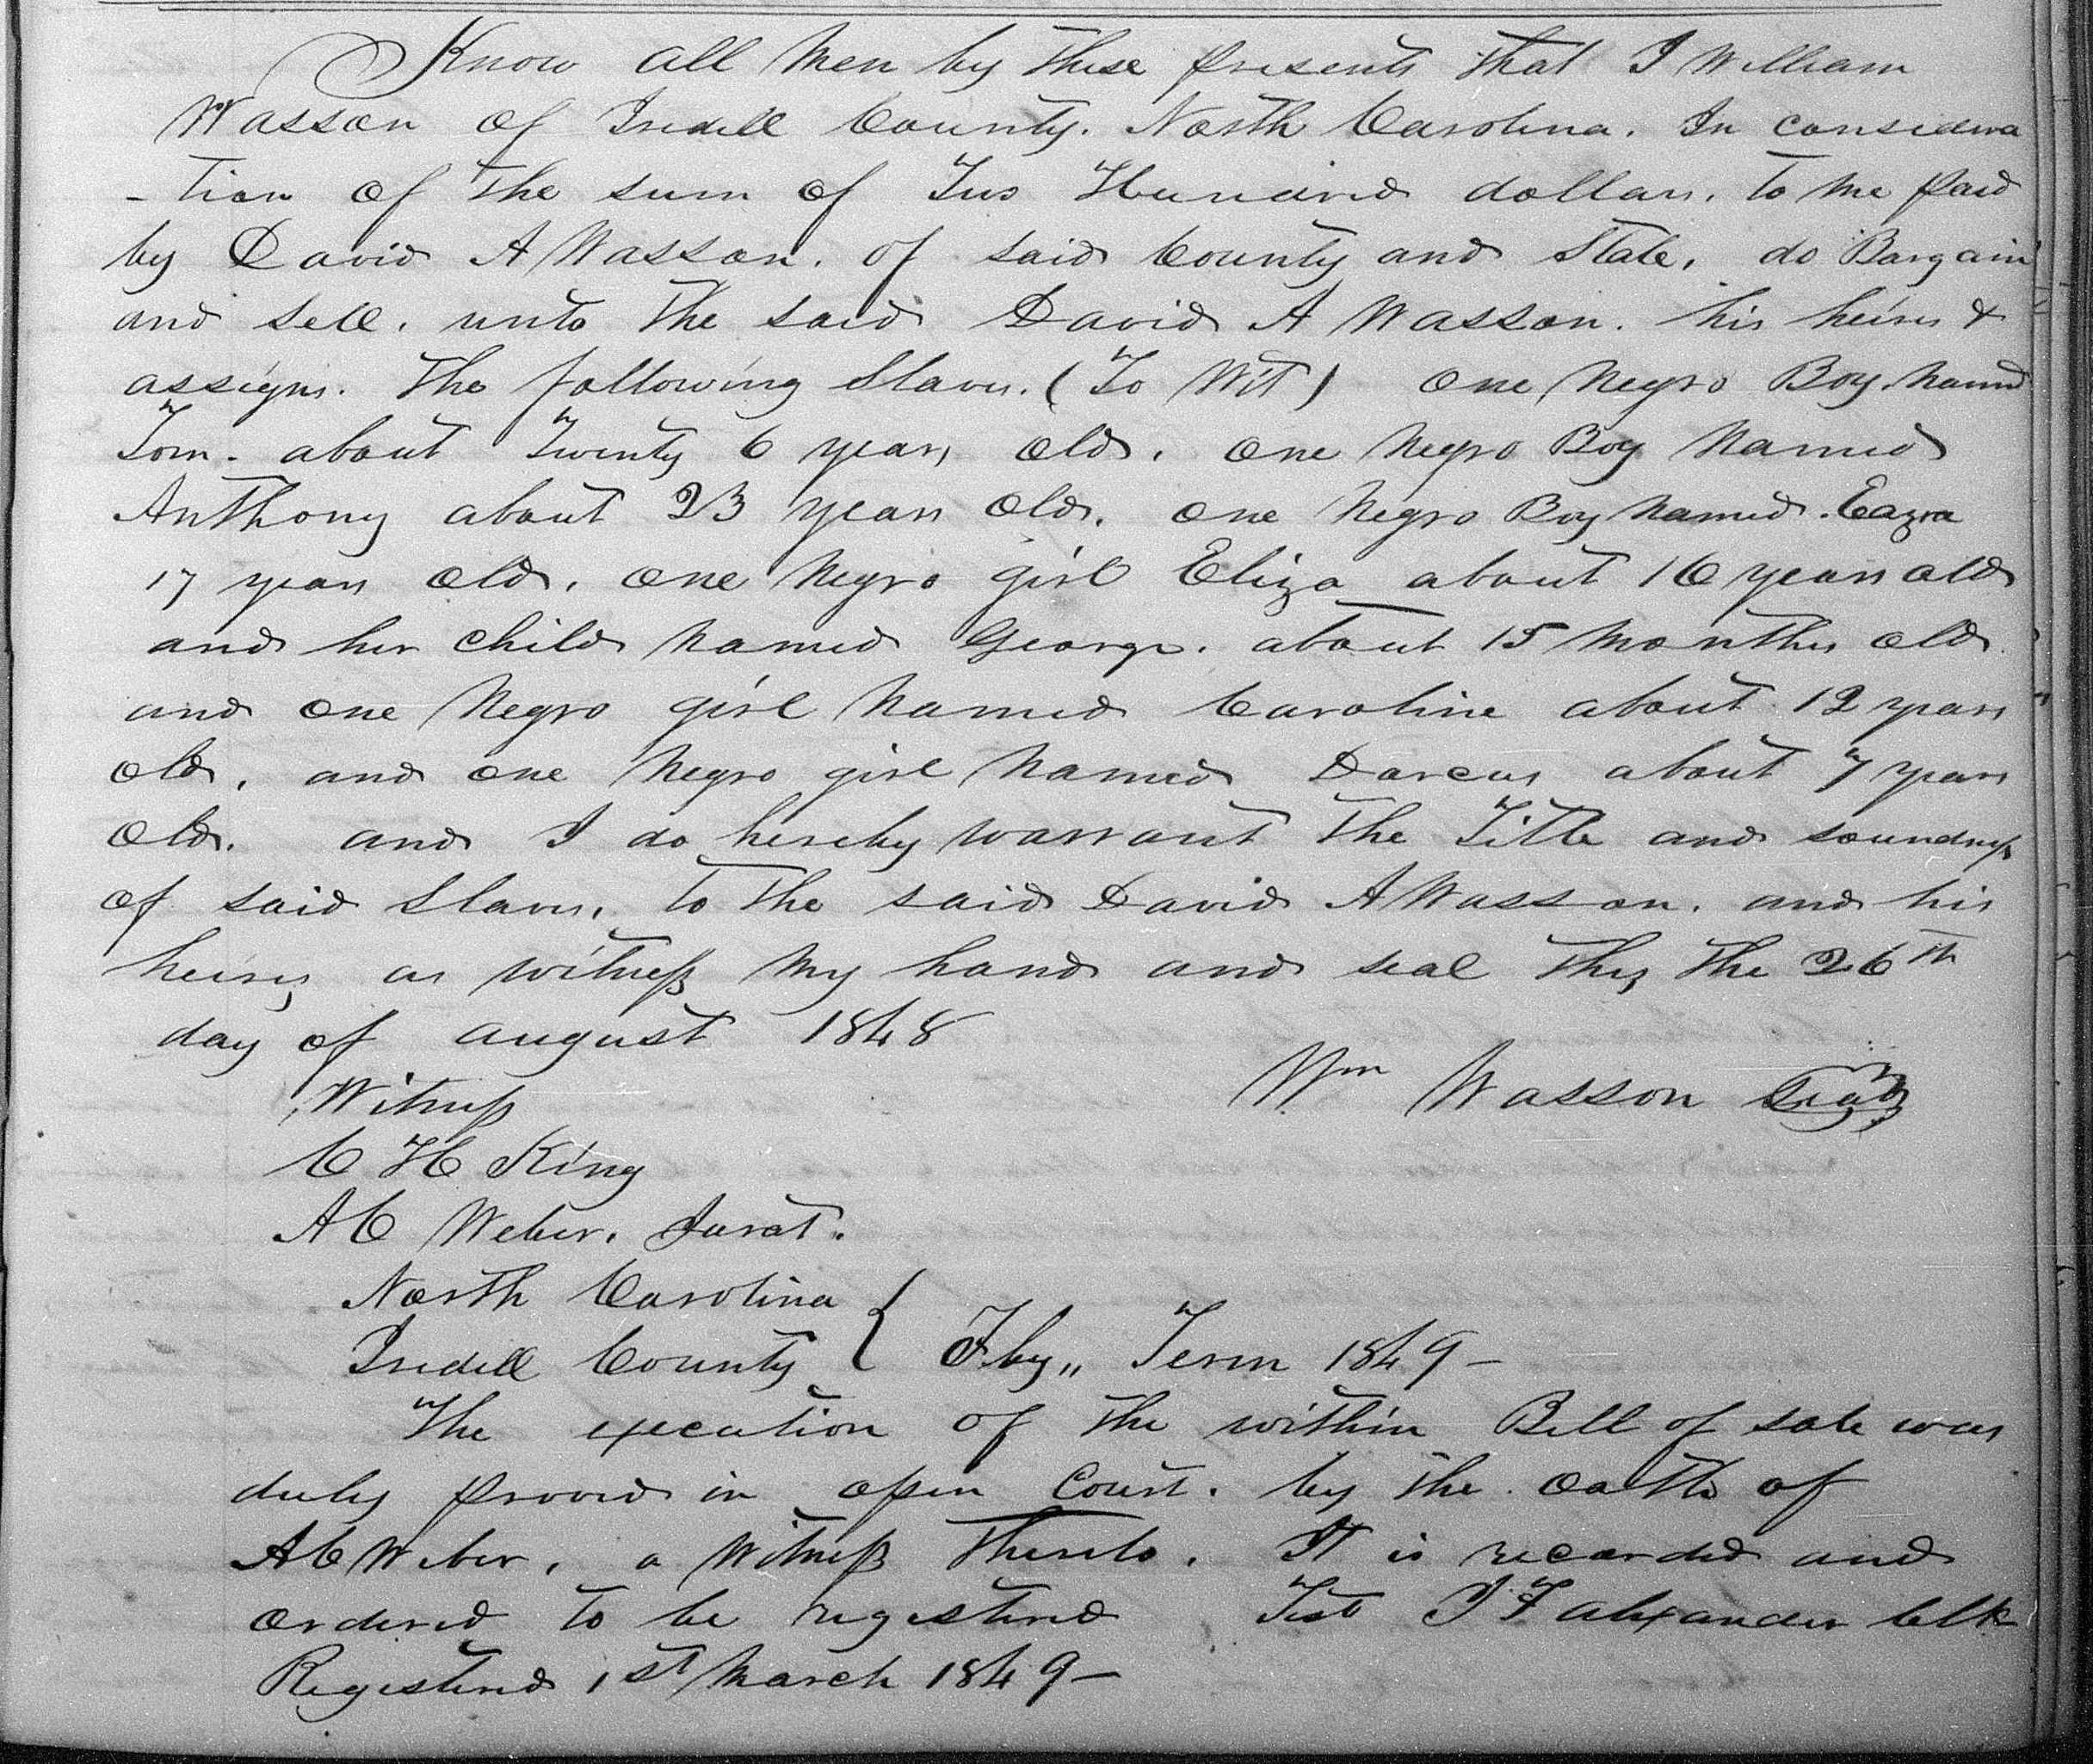 Know all men by these presents that I William
Wasson of Iredell County. North Carolina. In considera
-tion of the sum of Two Hundred dollars. to me paid
by David A Wasson. of said County and State. do Bargain
and sell. unto the said David A Wasson. his heirs &
assigns. the following Slaves. (To Wit) one negro Boy named
Tom. about Twenty 6 years old. one negro Boy named
Anthony about 23 years old. one negro Boy named Eazra
17 years old. one negro girl Eliza about 16 years old
and her child named George. about 15 months old
and one negro girl named Caroline about 12 years
old. and one negro girl named Darcus about 7 years
old. and I do hereby warrant the Title and soundness
of said Slaves. to the said David A Wasson. and his
heirs as witness my hand and seal this the 26th
day of august 1848
Wm Wasson Seal
Witness
C H King
A C Weber. Jurat.
North Carolina
Iredell County { Fby,, Term 1849 -
The execution of the within Bill of sale was
duly proved in open Court. by the oath of
A C Weber. a witness thereto. It is recorded and
ordered to be registered Test J F alexander Clk
Registered 1st March 1849 -